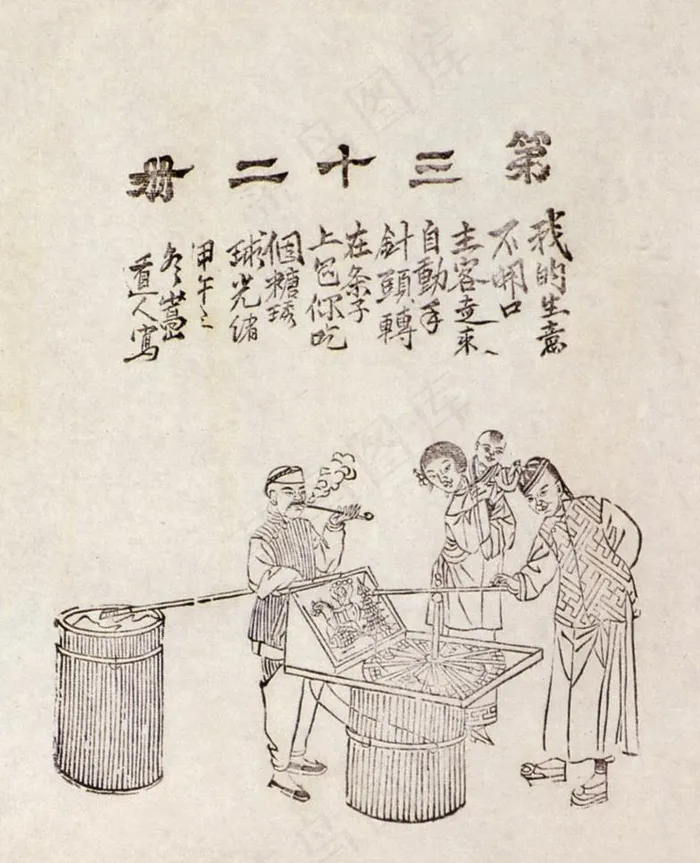 第三十二册
我的生意
不開口
主客走来、
自動手
針頭轉
在条子
上包你吃
個糖琇
球光緒
甲午之
冬嵩
道人寫
图库